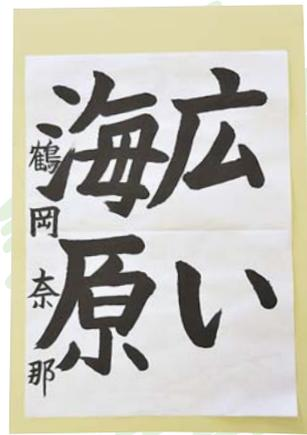 広い
海原
鶴岡奈那